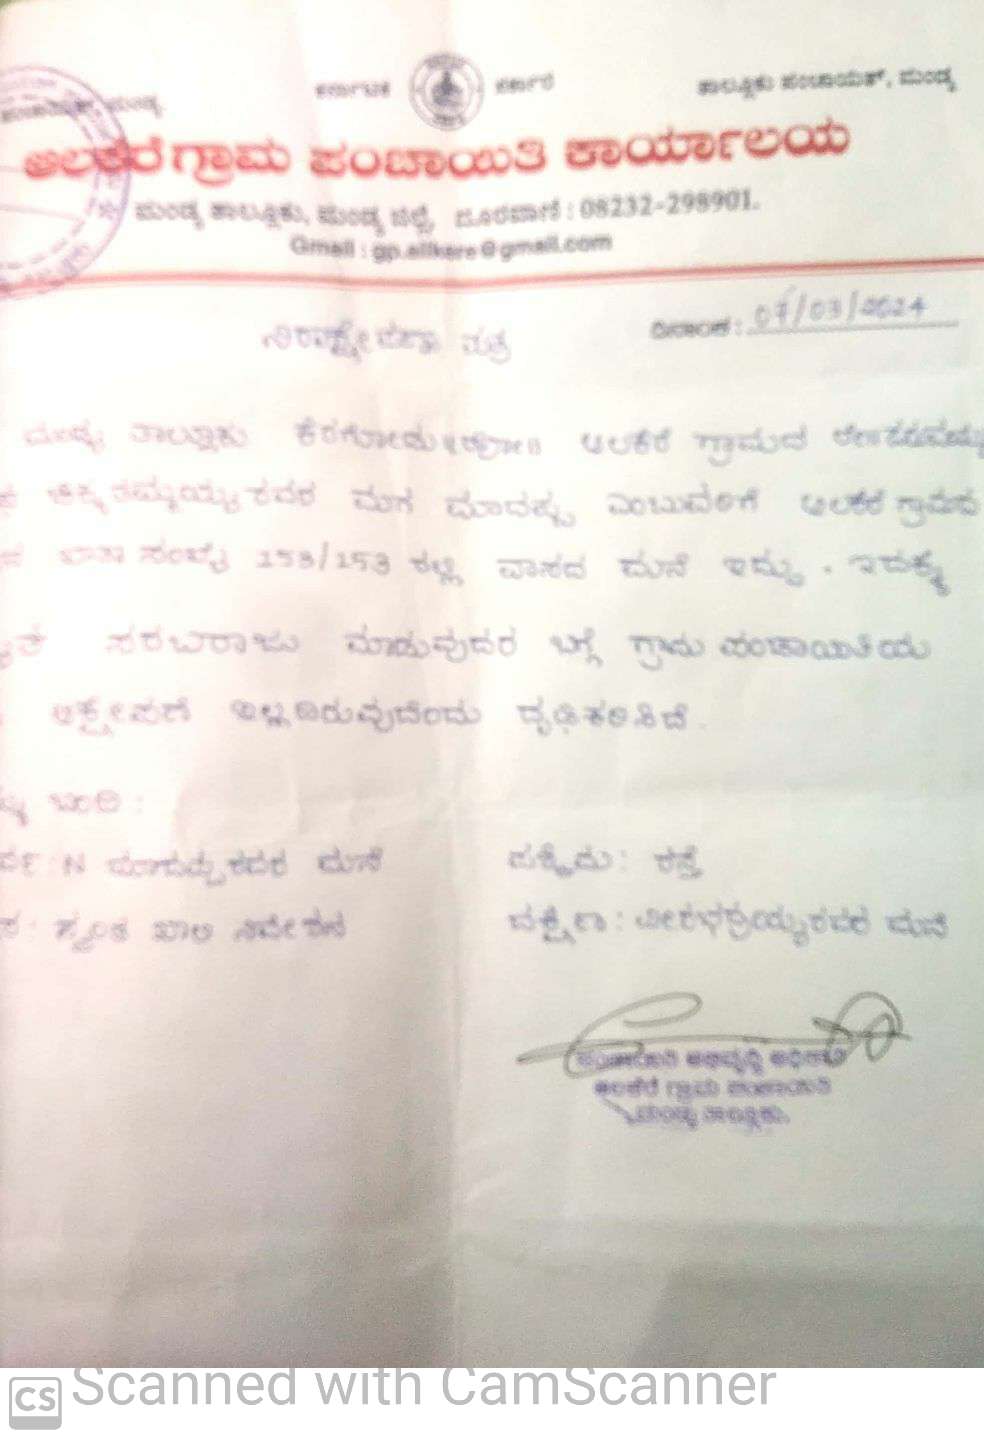 ಕರ್ನಾಟಕ ಸರ್ಕಾರ
ತಾಲ್ಲೂಕು ಪಂಚಾಯತ್, ಮಂಡ್ಯ
ಆಲಕೆರೆ ಗ್ರಾಮ ಪಂಚಾಯಿತಿ ಕಾರ್ಯಾಲಯ
ಮಂಡ್ಯ ತಾಲ್ಲೂಕು, ಮಂಡ್ಯ ಜಿಲ್ಲೆ, ದೂರವಾಣಿ : 08232-298901.
Gmail : gp.allkere@gmail.com
ದಿನಾಂಕ : 07/03/2024
ನಿರಾಕ್ಷೇಪಣಾ ಪತ್ರ
ಮಂಡ್ಯ ತಾಲ್ಲೂಕು ಕೆರಗೋಡು ಆಲಕೆರೆ ಗ್ರಾಮದ
ಚಿಕ್ಕತಮ್ಮಯ್ಯರವರ ಮಗ ಮಾದಪ್ಪ ಎಂಬುವರಿಗೆ ಆಲಕೆರೆ ಗ್ರಾಮದ
ಖಾತಾ ಸಂಖ್ಯೆ 153/153 ರಲ್ಲಿ ವಾಸದ ಮನೆ ಇದ್ದು . ಇದಕ್ಕೆ
ಸರಬರಾಜು ಮಾಡುವುದರ ಬಗ್ಗೆ ಗ್ರಾಮ ಪಂಚಾಯಿತಿಯ
ಆಕ್ಷೇಪಣೆ ಇಲ್ಲದಿರುವುದೆಂದು ದೃಢಿಕರಿಸಿದೆ .
N ಮಾದಪ್ಪರವರ ಮನೆ ಪಶ್ಚಿಮ : ರಸ್ತೆ
ಸ್ವಂತ ಖಾಲಿ ನಿವೇಶನ ದಕ್ಷಿಣ : ವೀರಭದ್ರಯ್ಯರವರ ಮನೆ
ಪಂಚಾಯಿತಿ ಅಭಿವೃದ್ಧಿ ಅಧಿಕಾರಿ
ಆಲಕೆರೆ ಗ್ರಾಮ ಪಂಚಾಯಿತಿ
ಮಂಡ್ಯ ತಾಲ್ಲೂಕು.
CS Scanned with CamScanner